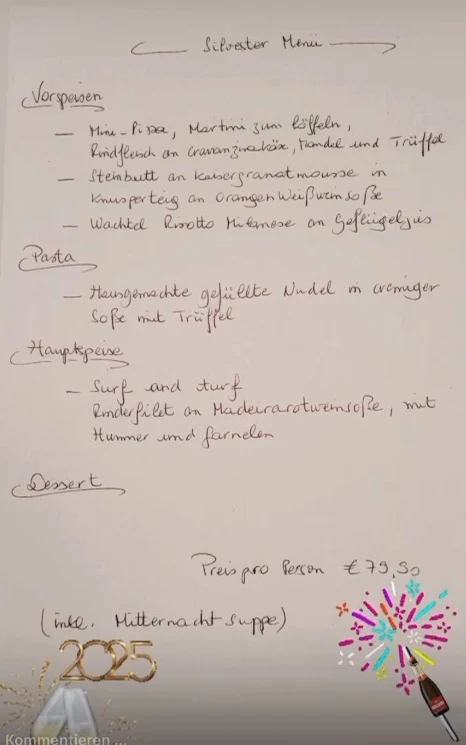 Silvester Menü
Vorspeisen
— Mini-Pizza, Martini zum löffeln,
Rindfleisch an Cravanzuakäse, Mandel und Trüffel
— Steinbutt an Kaisergranatmousse in
Knusperteig an Orangen Weißweinsoße
— Wachtel Risotto Milanese an Geflügeljus
Pasta
— Hausgemachte gefüllte Nudel in cremiger
Soße mit Trüffel
Hauptspeise
— Surf and turf
Rinderfilet an Madeirarotweinsoße, mit
Hummer und Garnelen
Dessert
Preis pro Person € 79,90
(inkl. Mitternacht suppe)
2025
Kommentieren ...